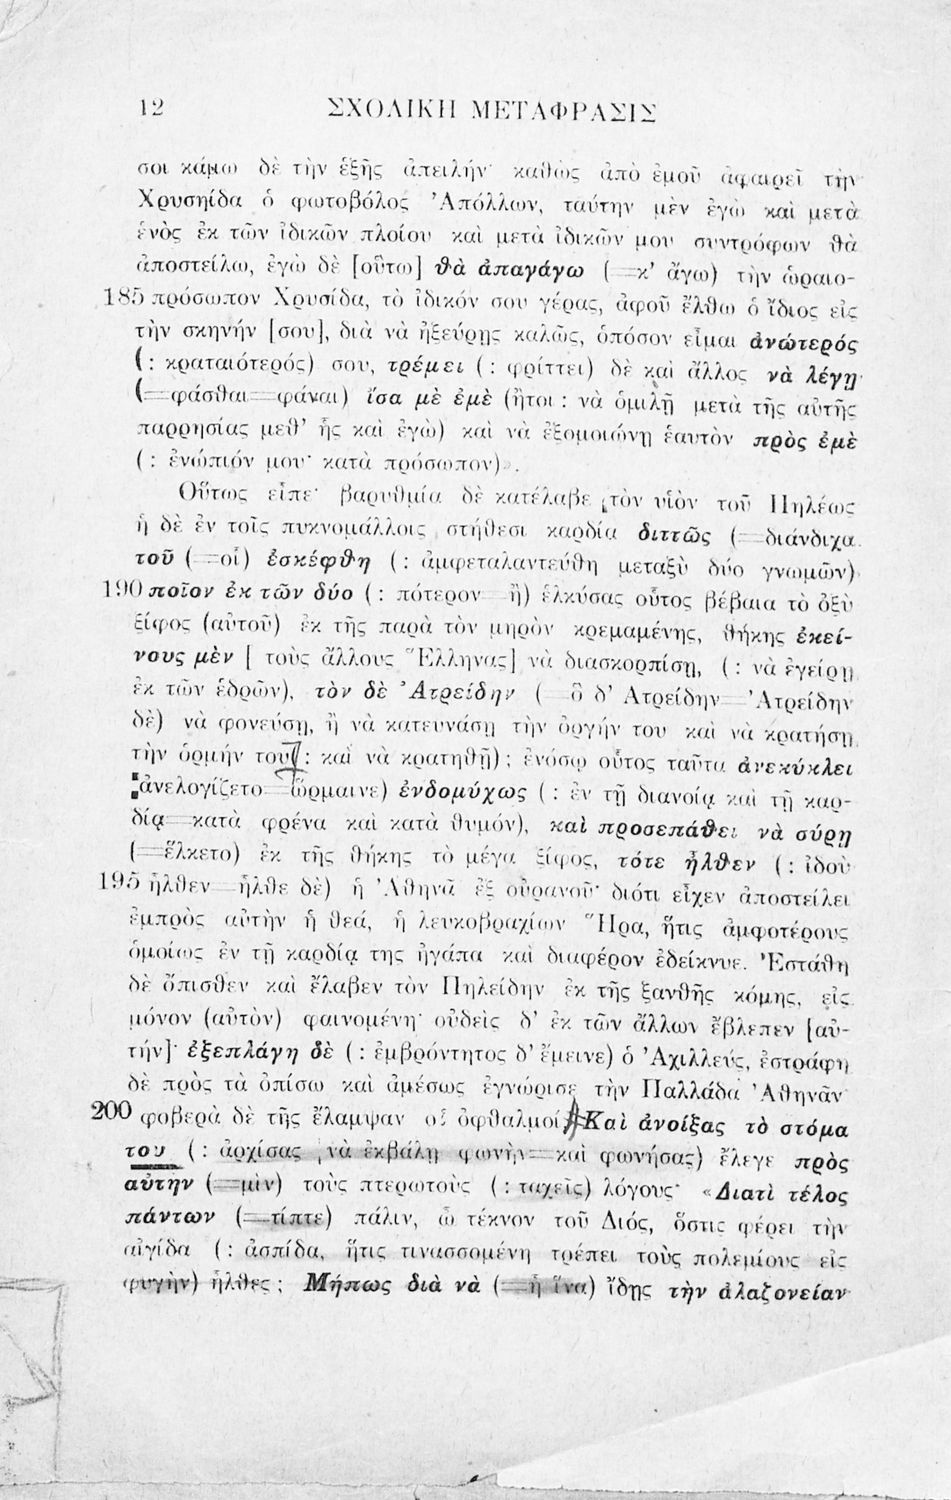 12 ΣΧΟΛΙΚΗ ΜΕΤΑΦΡΑΣΙΣ
σοι κάμω δὲ τὴν ἑξῆς ἀπειλήν· καθὼς ἀπὸ ἐμοῦ ἀφαιρεῖ τὴν
Χρυσηίδα ὁ φωτοβόλος Ἀπόλλων, ταύτην μὲν ἐγὼ καὶ μετὰ
ἑνὸς ἐκ τῶν ἰδικῶν πλοίου καὶ μετὰ ἰδικῶν μου συντρόφων θὰ
ἀποστείλω, ἐγὼ δὲ [οὕτω] θὰ ἀπαγάγω (=κ’ ἄγω) τὴν ὡραιο-
185 πρόσωπον Χρυσίδα, τὸ ἰδικόν σου γέρας, ἀφοῦ ἔλθω ὁ ἴδιος εἰς
τὴν σκηνήν [σου], διὰ νὰ ἠξεύρῃς καλῶς, ὁπόσον εἶμαι ἀνώτερός
(: κραταιότερός) σου, τρέμει (: φρίττει) δὲ καὶ ἄλλος νὰ λέγῃ
(=φάσθαι=φάναι) ἴσα μὲ ἐμὲ (ἤτοι : νὰ ὁμιλῇ μετὰ τῆς αὐτῆς
παρρησίας μεθ’ ἧς καὶ ἐγὼ) καὶ νὰ ἐξομοιώνῃ ἑαυτὸν πρὸς ἐμὲ
(: ἐνώπιόν μου· κατὰ πρόσωπον)».
Οὕτως εἶπε· βαρυθμία δὲ κατέλαβε τὸν υἱὸν τοῦ Πηλέως
ἡ δὲ ἐν τοῖς πυκνομάλλοις στήθεσι καρδία διττῶς (=διάνδιχα
τοῦ (=οἷ) ἐσκέφθη (: ἀμφεταλαντεύθη μεταξὺ δύο γνωμῶν)
190 ποῖον ἐκ τῶν δύο (: πότερον=ἢ) ἑλκύσας οὗτος βέβαια τὸ ὀξὺ
ξίφος (αὐτοῦ) ἐκ τῆς παρὰ τὸν μηρὸν κρεμαμένης, θήκης ἐκεί-
νους μὲν [ τοὺς ἄλλους Ἕλληνας] νὰ διασκορπίσῃ, (: νὰ ἐγείρῃ
ἐκ τῶν ἑδρῶν), τὸν δὲ Ἀτρείδην (=ὃ δ’ Ατρείδην=Ἀτρείδην
δὲ) νὰ φονεύσῃ, ἢ νὰ κατευνάσῃ τὴν ὀργήν του καὶ νὰ κρατήσῃ
τὴν ὁρμήν του (: καὶ νὰ κρατηθῇ) ; ἐνόσῳ οὗτος ταῦτα ἀνεκύκλει
(:ἀνελογίζετο=ὥρμαινε) ἐνδομύχως (: ἐν τῇ διανοίᾳ καὶ τῇ καρ-
δίᾳ=κατὰ φρένα καὶ κατὰ θυμόν), καὶ προσεπάθει νὰ σύρῃ
(=ἕλκετο) ἐκ τῆς θήκης τὸ μέγα ξίφος, τότε ἦλθεν (: ἰδοὺ
195 ἦλθεν=ἦλθε δὲ) ἡ Ἀθηνᾶ ἐξ οὐρανοῦ· διότι εἶχεν ἀποστείλει
ἐμπρὸς αὐτὴν ἡ θεά, ἡ λευκοβραχίων Ἥρα, ἥτις ἀμφοτέρους
ὁμοίως ἐν τῇ καρδίᾳ της ἠγάπα καὶ διαφέρον ἐδείκνυε. Ἐστάθη
δὲ ὄπισθεν καὶ ἔλαβεν τὸν Πηλείδην ἐκ τῆς ξανθῆς κόμης, εἰς
μόνον (αὐτὸν) φαινομένη· οὐδεὶς δ’ ἐκ τῶν ἄλλων ἔβλεπεν [αὐ-
τήν]· ἐξεπλάγη δὲ (: ἐμβρόντητος δ’ ἔμεινε) ὁ Ἀχιλλεύς, ἐστράφη
δὲ πρὸς τὰ ὀπίσω καὶ ἀμέσως ἐγνώρισε τὴν Παλλάδα Ἀθηνᾶν
200 φοβερὰ δὲ τῆς ἔλαμψαν οἱ ὀφθαλμοί. Καὶ ἀνοίξας τὸ στόμα
του (: ἀρχίσας νὰ ἐκβάλῃ φωνὴν=καὶ φωνήσας) ἔλεγε πρὸς
αὐτὴν (=μὶν) τοὺς πτερωτοὺς (: ταχεῖς) λόγους· «Διατὶ τέλος
πάντων (=τίπτε) πάλιν, ὦ τέκνον τοῦ Διός, ὅστις φέρει τὴν
αἰγίδα (: ἀσπίδα, ἥτις τινασσομένη τρέπει τοὺς πολεμίους εἰς
φυγὴν) ἦλθες ; Μήπως διὰ νὰ (=ἦ ἵνα) ἴδῃς τὴν ἀλαζονείαν